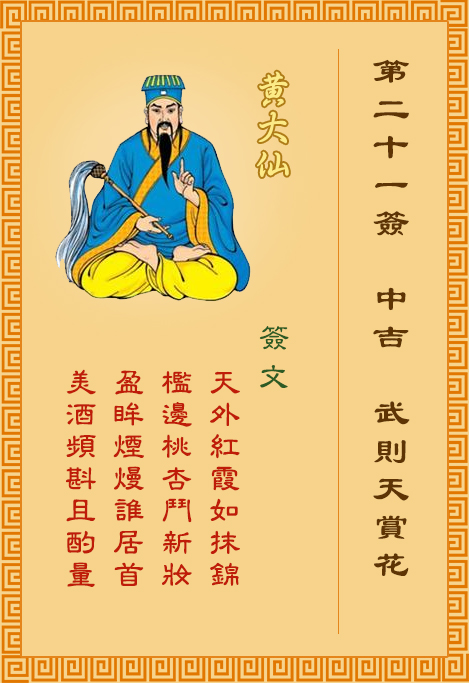 第二十一簽 中吉 武則天賞花
黃大仙
簽文
天外紅霞如抹錦
檻邊桃杏鬥新妝
盈眸煙熳誰居首
美酒頻斟且酌量